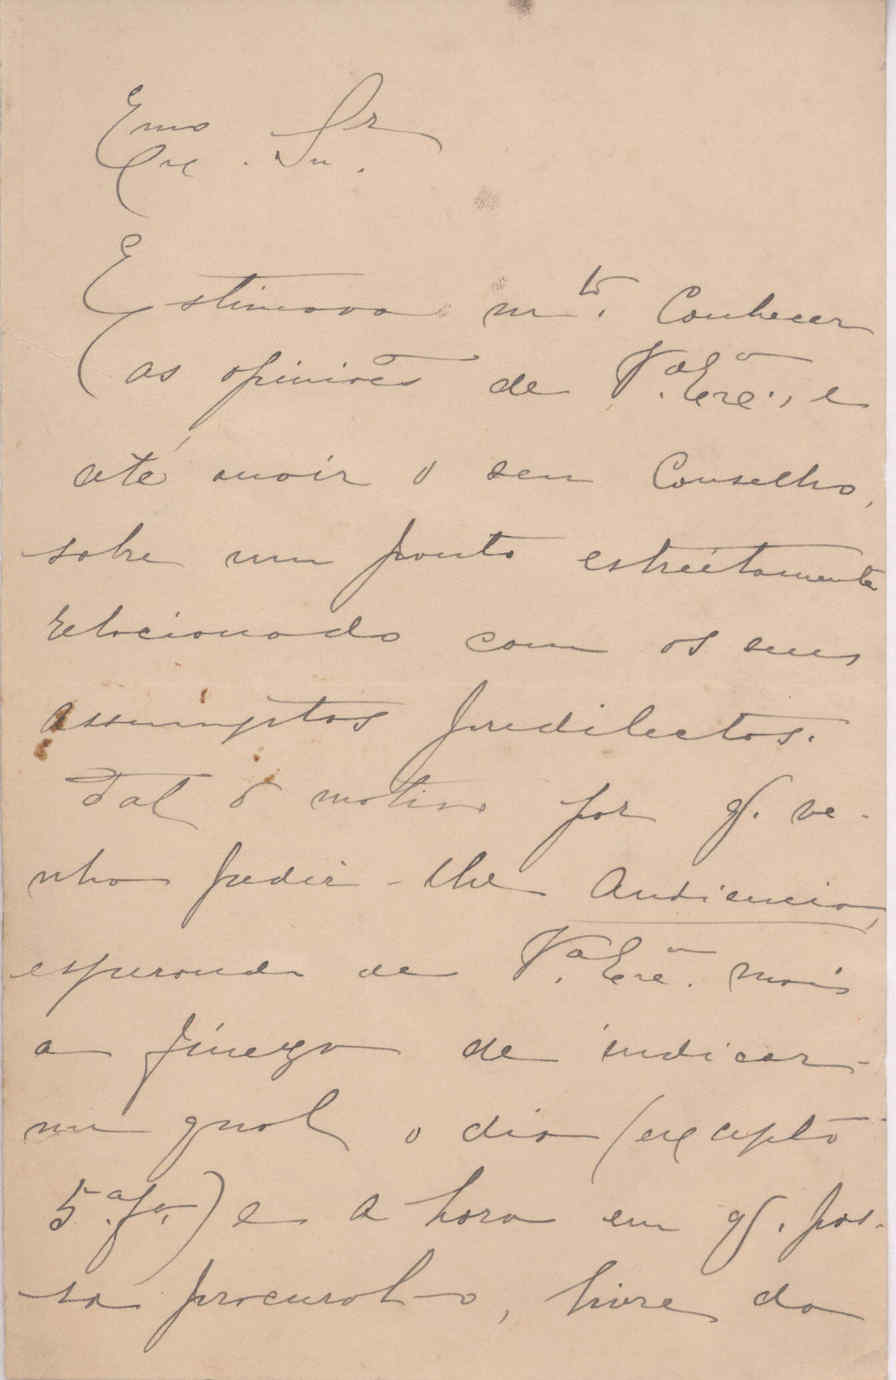 Exmo Sr
Estimava mto. Conhecer
as opiniões de Va. Exa., e
até ouvir o seu Conselho,
sobre um ponto estreitamente
relacionado com os seus
assumptos predilectos.
Tal o motivo por q. ve-
nho pedir-lhe Audiencia,
esperando de Va. Exa. mais
a fineza de indicar-
me qual o dia (excepto
5.a fa.) e a hora em q. pos-
sa procural-o, livre da